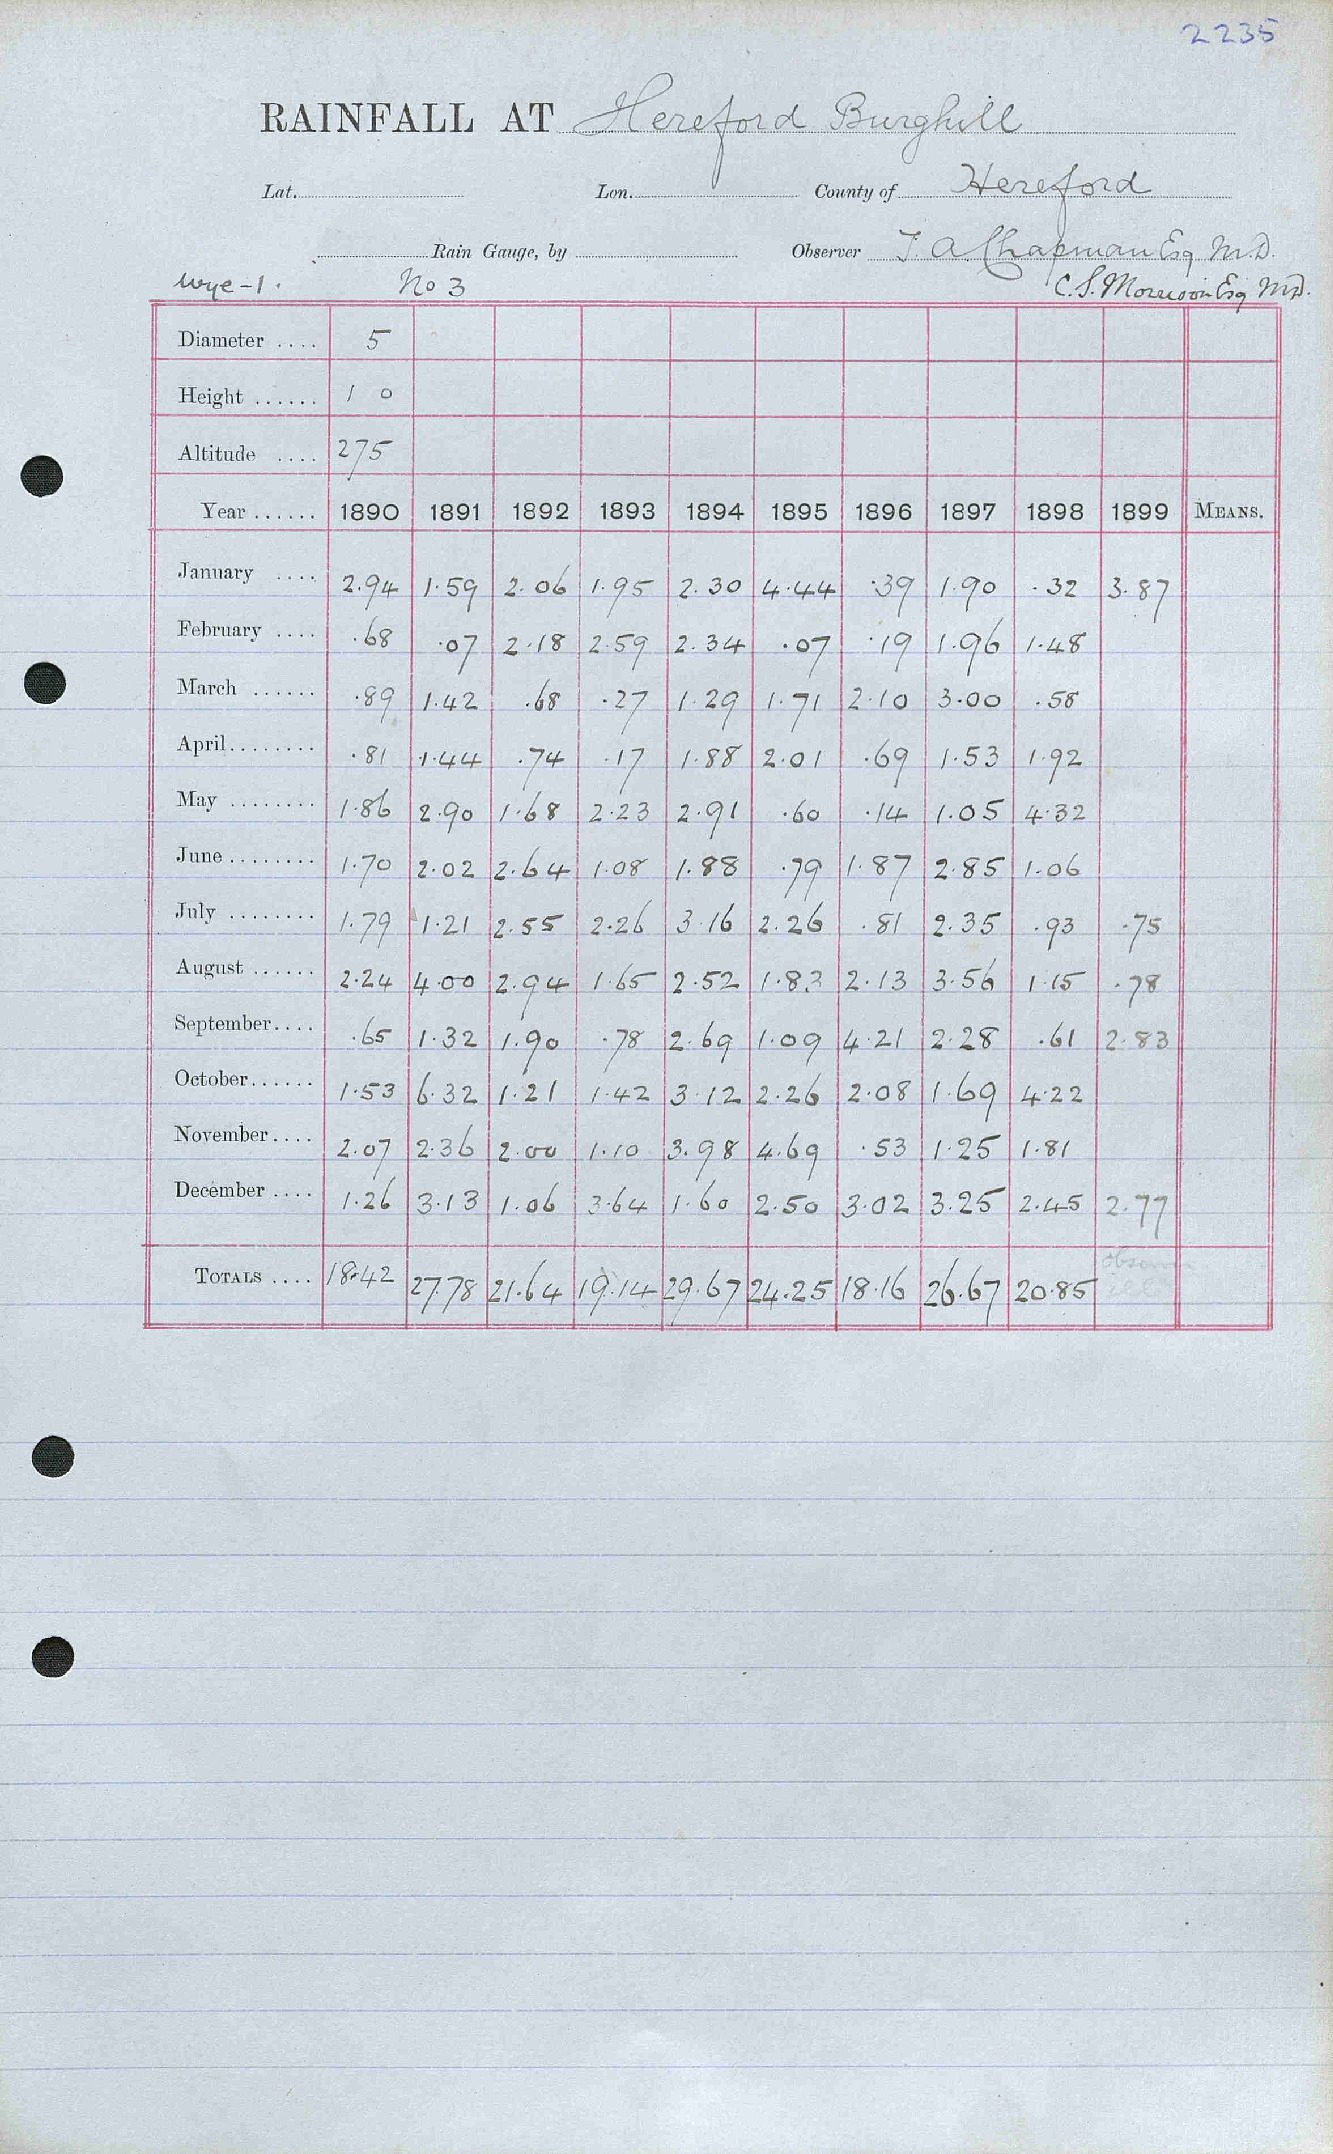 2235
RAINFALL AT Hereford Burghill
Lat. Lon. County of Hereford
Rain Gauge, by Observer T. A Chapman Esq M.D.
Wye-1. No 3 C. S. Morrison Esq M.D.
Diameter .... 5
Height ...... 1 0
Altitude .... 275
Year ...... 1890 1891 1892 1893 1894 1895 1896 1897 1898 1899 MEANS.
January .... 2.94 1.59 2.06 1.95 2.30 4.44 .39 1.90 .32 3.87
February .... .68 .07 2.18 2.59 2.34 .07 .19 1.96 1.48
March ...... .89 1.42 .68 .27 1.29 1.71 2.10 3.00 .58
April........ .81 1.44 .74 .17 1.88 2.01 .69 1.53 1.92
May ........ 1.86 2.90 1.68 2.23 2.91 .60 .14 1.05 4.32
June ........ 1.70 2.02 2.64 1.08 1.88 .79 1.87 2.85 1.06
July ........ 1.79 1.21 2.55 2.26 3.16 2.26 .81 2.35 .93 .75
August ...... 2.24 4.00 2.94 1.65 2.52 1.83 2.13 3.56 1.15 .78
September.... .65 1.32 1.90 .78 2.69 1.09 4.21 2.28 .61 2.83
October...... 1.53 6.32 1.21 1.42 3.12 2.26 2.08 1.69 4.22
November.... 2.07 2.36 2.00 1.10 3.98 4.69 .53 1.25 1.81
December .... 1.26 3.13 1.06 3.64 1.60 2.50 3.02 3.25 2.45 2.77
TOTALS .... 18.42 27.78 21.64 19.14 29.67 24.25 18.16 26.67 20.85